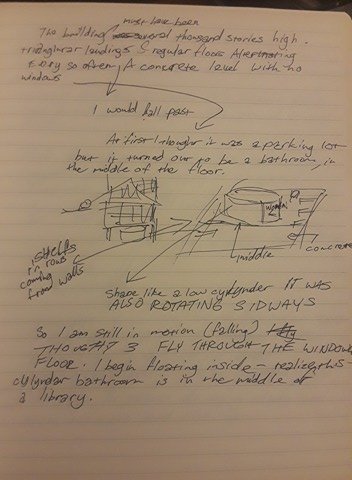 must have been
The building was several thousand stories high.
triangular landings & regular floors Alternating
Every so often, A concrete level with no
windows
I would fall past
At first I thought it was a parking lot
but it turned out to be a bathroom, in
the middle of the floor.
shelfs
in rows
coming
from walls
middle
concrete
shape like a low cylynder IT WAS
ALSO ROTATING SIDWAYS
So I am still in motion (falling)
THOUGH & FLY THROUGH THE WINDOW
FLOOR. I begin floating inside - realize this
cylyndar bathroom is in the middle of
a library.